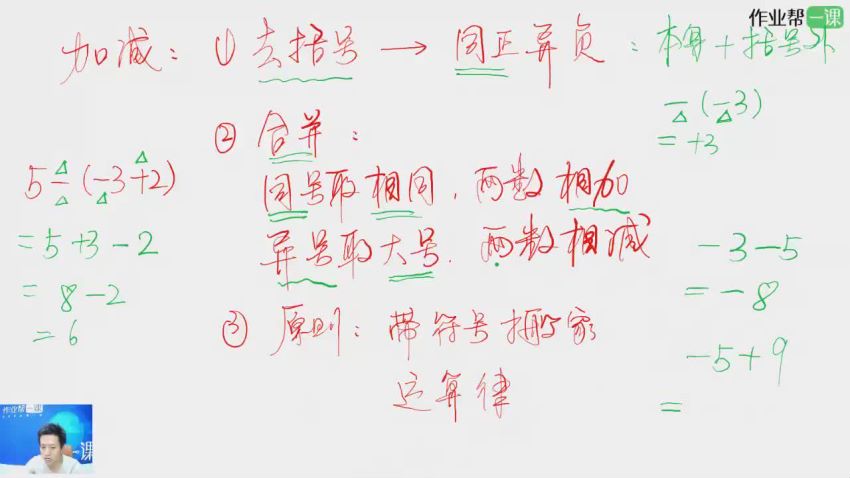 作业帮一课
加减: ① 去括号 → 同正异负 : 本身 + 括号外
-(-3)
= +3
② 合并:
5-(-3+2)
同号取相同, 两数相加
= 5+3-2
异号取大号, 两数相减
-3-5
= 8-2
= -8
= 6
③ 原则: 带符号搬家
-5+9
运算律
=
作业帮一课